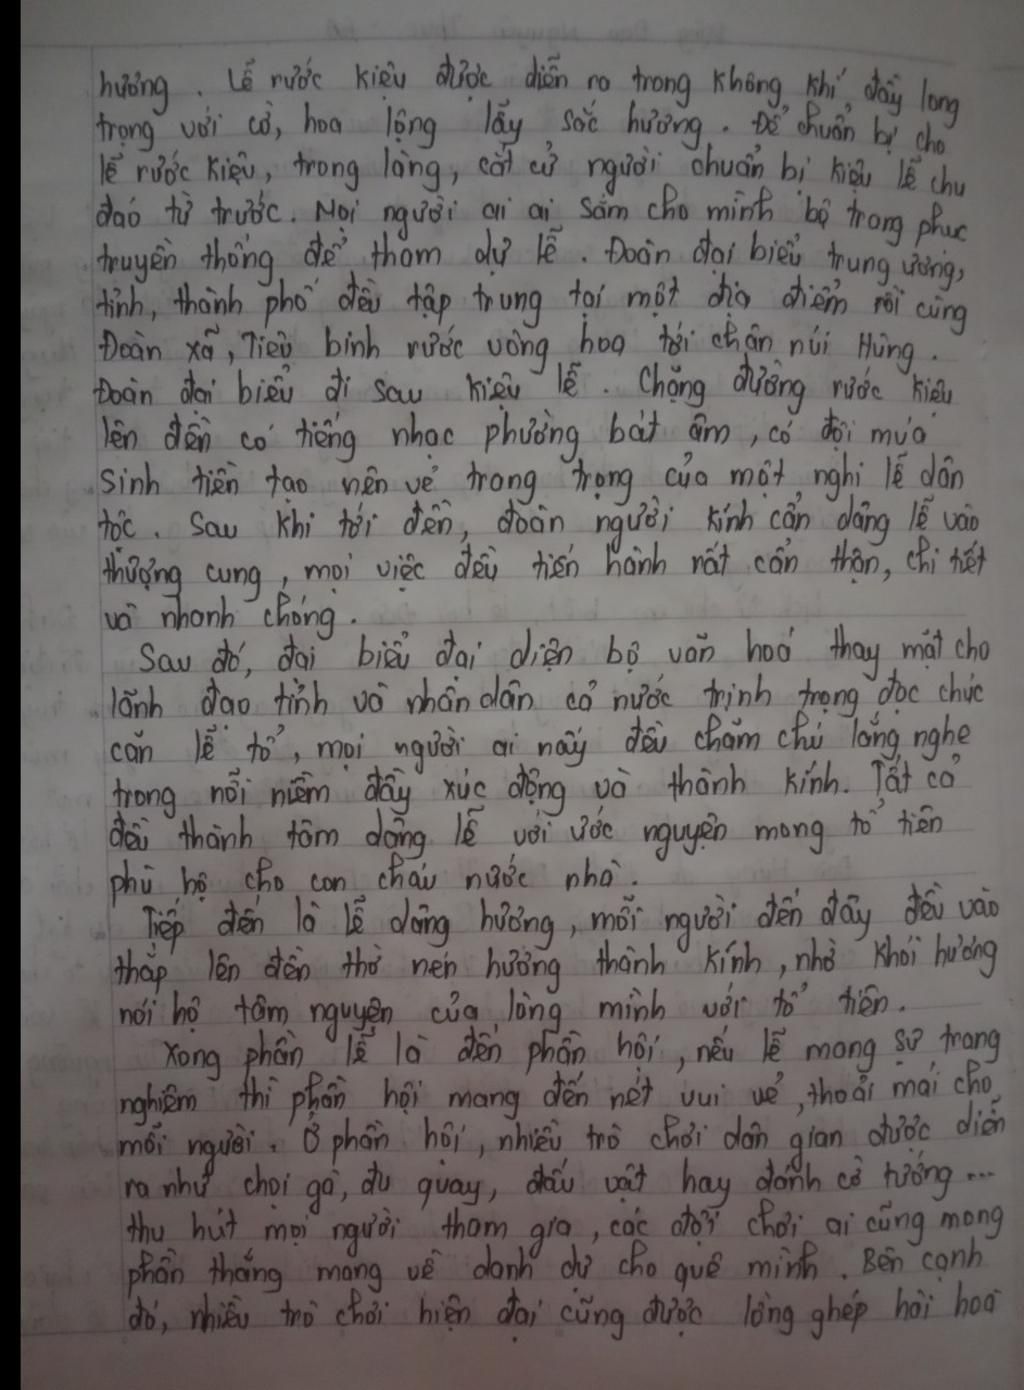 hương. Lễ rước kiệu được diễn ra trong không khí đầy long
trọng với cờ, hoa lộng lẫy sắc hương. Để chuẩn bị cho
lễ rước kiệu, trong làng, cắt cử người chuẩn bị kiệu lễ chu
đaó từ trước. Mọi người ai ai sắm cho mình bộ trang phục
truyền thống để tham dự lễ. Đoàn đại biểu trung ương,
tỉnh, thành phố đều tập trung tại một địa điểm rồi cùng
Đoàn xã, Tiêu binh rước vòng hoa tới chân núi Hùng.
Đoàn đại biểu đi sau kiệu lễ. Chặng đường rước kiệu
lên đền có tiếng nhạc phường bát âm, có đội múa
sinh tiền tạo nên vẻ trang trọng của một nghi lễ dân
tộc. Sau khi tới đền, đoàn người kính cẩn dâng lễ vào
thượng cung, mọi việc đều tiến hành rất cẩn thận, chi tiết
và nhanh chóng.
Sau đó, đại biểu đại diện bộ văn hoá thay mặt cho
lãnh đạo tỉnh và nhân dân cả nước trịnh trọng đọc chúc
căn lễ tổ, mọi người ai nấy đều chăm chú lắng nghe
trong nỗi niềm đầy xúc động và thành kính. Tất cả
đều thành tâm dâng lễ với ước nguyện mong tổ tiên
phù hộ cho con cháu nước nhà.
Tiếp đến là lễ dâng hương, mỗi người đến đây đều vào
thắp lên đền thờ nén hương thành kính, nhờ khói hương
nói hộ tâm nguyện của lòng mình với tổ tiên.
Xong phần lễ là đến phần hội, nếu lễ mang sự trang
nghiêm thì phần hội mang đến nét vui vẻ, thoải mái cho
mỗi người. Ở phần hội, nhiều trò chơi dân gian được diễn
ra như chọi gà, đu quay, đấu vật hay đánh cờ tướng...
thu hút mọi người tham gia, các đội chơi ai cũng mong
phần thắng mang về danh dự cho quê mình. Bên cạnh
đó, nhiều trò chơi hiện đại cũng được lồng ghép hài hoà